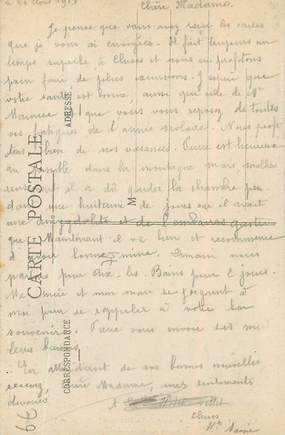 Chère Madame,
Je pense que vous avez reçu les cartes
que je vous ai envoyées. Il fait toujours un
temps superbe à Cluses et nous en profitons
pour faire de jolies excursions. J'espère que
votre santé est bonne ainsi que celle de Mr
Maurice et que vous vous reposez de toutes
vos fatigues de l'année scolaire. Nous profi-
tons bien de nos vacances. Pierre est heureux
dans la montagne mais malheu-
reusement il a dû garder la chambre pen-
dant une huitaine de jours car il avait
une amygdalite et de l'embarras gastri-
que. Maintenant il va bien et recommence
à avoir bonne mine. Demain nous
partons pour Aix-les-Bains pour 2 jours.
et mon mari se joignent à
moi pour se rappeler à votre bon
souvenir. Pierre vous envoie ses meil-
leurs baisers.
En attendant de vos bonnes nouvelles
recevez, chère Madame, mes sentiments
dévoués
Cluses
Hte Savoie
CARTE POSTALE
CORRESPONDANCE
ADRESSE
M